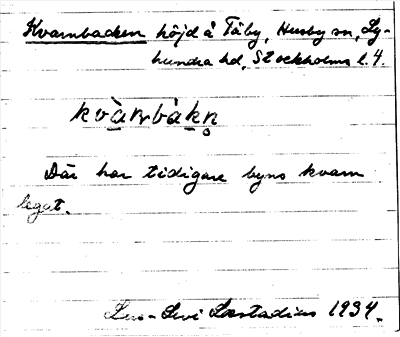 Kvarnbacken höjd å Täby, Husby sn, Ly-
hundra hd, Stockholms l. 4.
kvà̱rnbà̱kn̥
Där har tidigare byns kvarn
legat.
Lars-Levi Læstadius 1934.